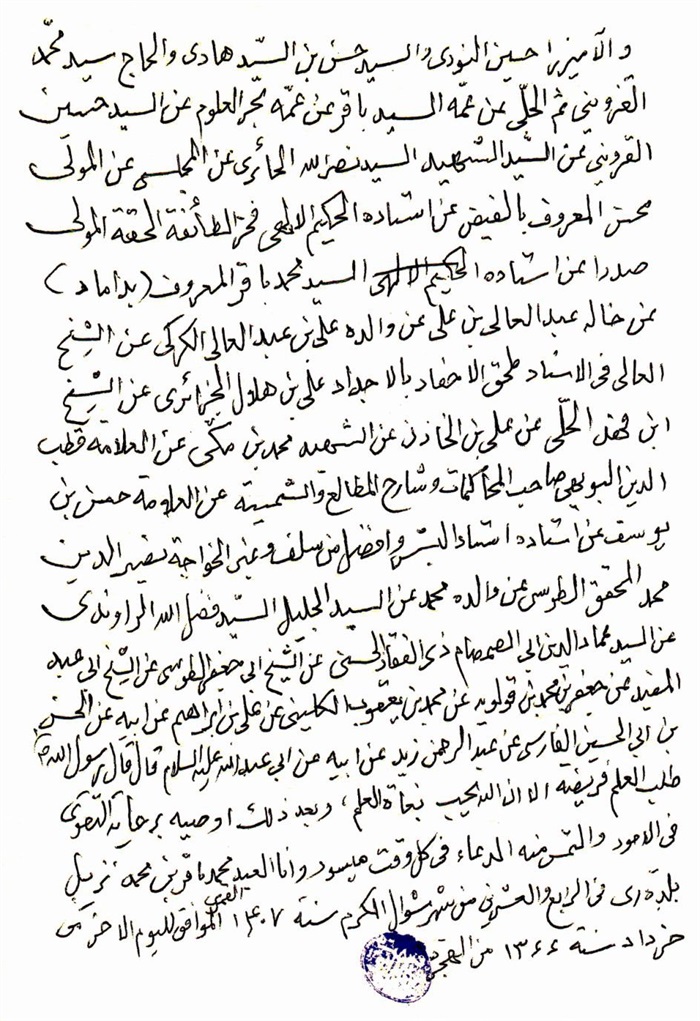 و الآمیرزا حسین النوری و السید حسن بن السّید هادی و الحاج سید محمّد
القزوینی ثم الحلّی عن عمّه السید باقر عن عمّه بحر العلوم عن السید حسین
القزوینی عن السّید الشهید السید نصر الله الحائری عن المجلسی عن المولی
محسن المعروف بالفیض عن استاده الحکیم الالهی فخر الطائفة المحقة المولی
صدرا عن استاده الحکیم الالهی السید محمد باقر المعروف (بداماد)
عن خاله عبد العالی بن علی عن والده علی بن عبد العالی الکرکی عن الشیخ
العالی فی الاسناد ملحق الاحفاد بالاجداد علی بن هلال الجزائری عن الشیخ
ابن فهد الحلّی عن علی بن الخازن عن الشهید محمد بن مکّی عن العلامة قطب
الدین البویهی صاحب المحاکمات و شارح المطالع و الشمسیة عن العلامة حسن بن
یوسف عن استاده استاد البشر و افضل من سلف و غبر الخواجة نصیر الدین
محمد المحقق الطوسی عن والده محمد عن السید الجلیل السیّد فضل الله الراوندی
عن السید عماد الدین ابی الصمصام ذی الفقار الحسنی عن الشیخ ابی جعفر الطوسی عن الشیخ ابی عبد
المفید عن جعفر بن محمد بن قولویه عن محمد بن یعقوب الکلینی عن علی بن ابراهیم عن ابیه عن الحسن
بن ابی الحسین الفارسی عن عبد الرحمن زید عن ابیه عن ابی عبد الله علیه السلام قال قال رسول الله ص
طلب العلم فریضة الا ان الله یحب بغاة العلم، و بعد ذلک اوصیه برعایة التقوی
فی الامور و التمس منه الدعاء فی کل وقت میسور و انا العبد محمد باقر بن محمد نزیل
بلدة ری فی الرابع و العشرین من شهر شوال المکرم سنة ۱۴۰۷ القمری الموافق للیوم الاخر من
خرداد سنة ۱۳۶۶ من الهجرة